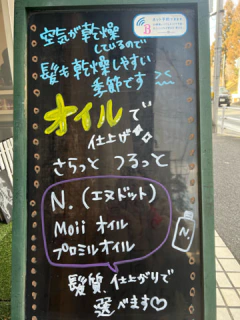 空気が乾燥
しているので
髪も乾燥しやすい
季節です ><
オイルで
仕上げ
さらっと つるっと
N.(エヌドット)
Moii オイル
プロミルオイル
N.
髪質、仕上がりで
選べます♡